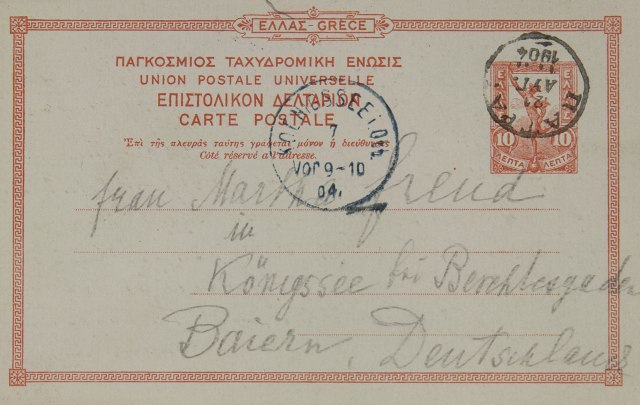 ΕΛΛΑΣ-GRÈCE
ΠΑΓΚΟΣΜΙΟΣ ΤΑΧΥΔΡΟΜΙΚΗ ΕΝΩΣΙΣ
UNION POSTALE UNIVERSELLE
ΕΠΙΣΤΟΛΙΚΟΝ ΔΕΛΤΑΡΙΟΝ
CARTE POSTALE
Ἐπὶ τῆς πλευρᾶς ταύτης γράφεται μόνον ἡ διεύθυνσις
Côté réservé a l'adresse.
ΠΑΤΡΑΙ
ΑΥΓ
1904
10 10
ΛΕΠΤΑ ΛΕΠΤΑ
7
VOR 9-10
04.
Frau Martha Grend
in
Königssee bei Berchtesgaden
Baiern, Deutschland